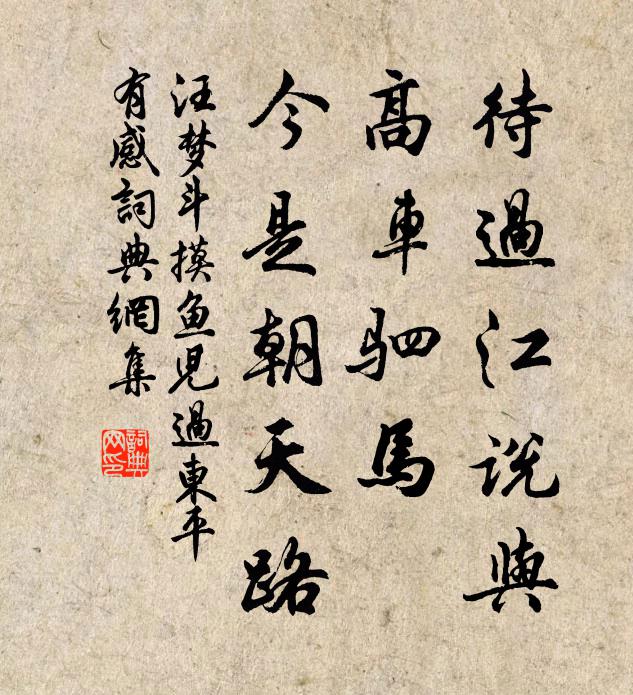 待過江説與
高車駟馬
今是朝天路
汪梦斗摸魚児過東平
有感詞典網集
詞典
网印